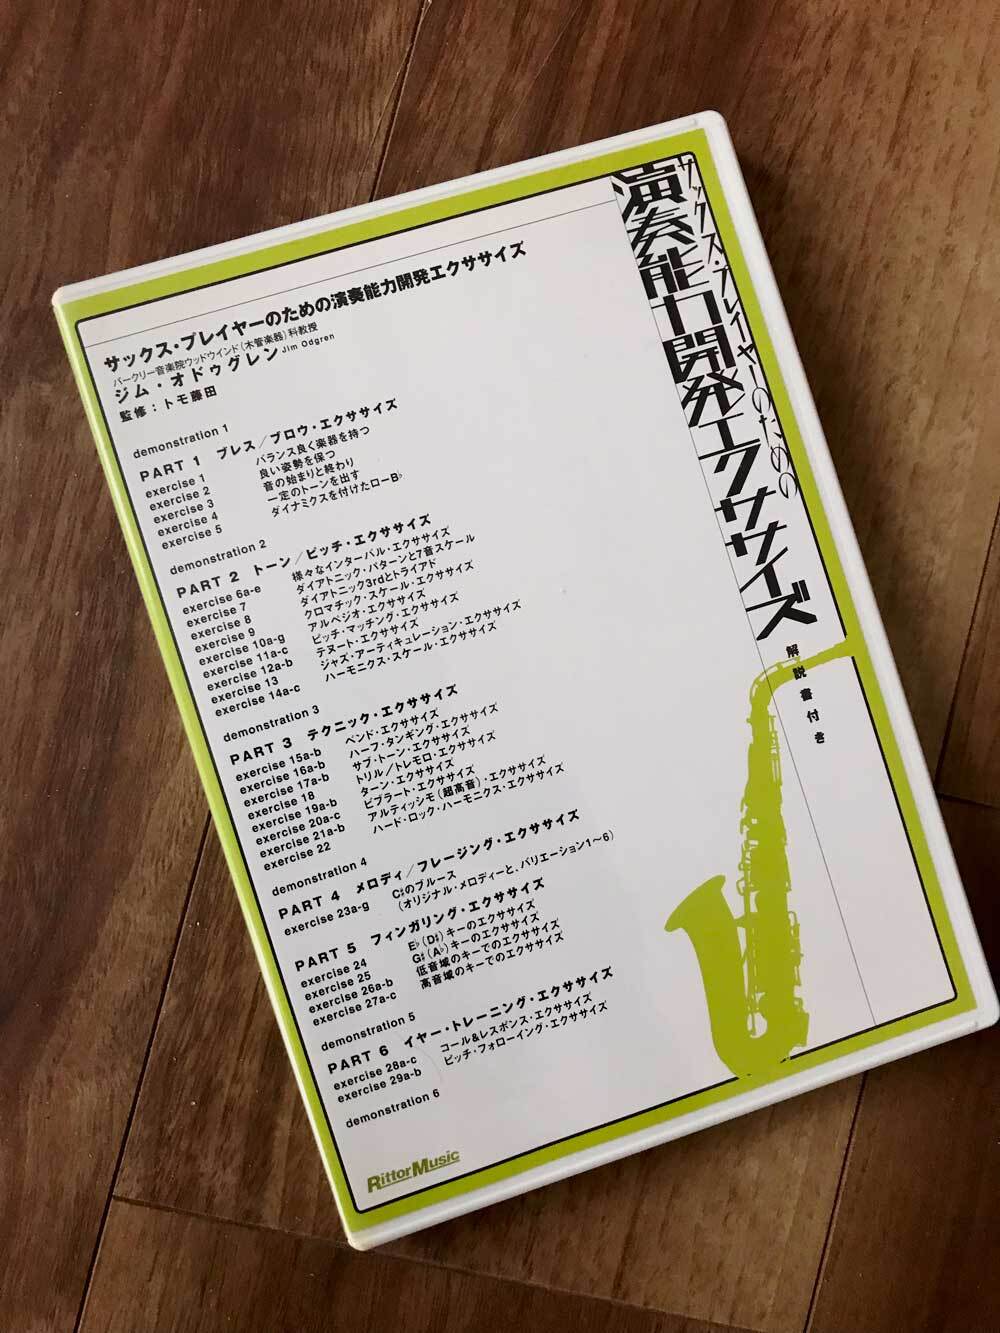 サックス・プレイヤーのための演奏能力開発エクササイズ
バークリー音楽院ウッドウインド(木管楽器)科教授
ジム・オドゥグレン Jim Odgren
監修:トモ藤田
demonstration 1
PART 1 ブレス/ブロウ・エクササイズ
exercise 1 バランス良く楽器を持つ
exercise 2 良い姿勢を保つ
exercise 3 音の始まりと終わり
exercise 4 一定のトーンを出す
exercise 5 ダイナミクスを付けたローB♭
demonstration 2
PART 2 トーン/ピッチ・エクササイズ
exercise 6a-e 様々なインターバル・エクササイズ
exercise 7 ダイアトニック・パターンと7音スケール
exercise 8 ダイアトニック3rdとトライアド
exercise 9 クロマチック・スケール・エクササイズ
exercise 10a-g アルペジオ・エクササイズ
exercise 11a-c ピッチ・マッチング・エクササイズ
exercise 12a-b テヌート・エクササイズ
exercise 13 ジャズ・アーティキュレーション・エクササイズ
exercise 14a-c ハーモニクス・スケール・エクササイズ
demonstration 3
PART 3 テクニック・エクササイズ
exercise 15a-b ベンド・エクササイズ
exercise 16a-b ハーフ・タンギング・エクササイズ
exercise 17a-b サブ・トーン・エクササイズ
exercise 18 トリル/トレモロ・エクササイズ
exercise 19a-b ターン・エクササイズ
exercise 20a-c ビブラート・エクササイズ
exercise 21a-b アルティッシモ(超高音)・エクササイズ
exercise 22 ハード・ロック・ハーモニクス・エクササイズ
demonstration 4
PART 4 メロディ/フレージング・エクササイズ
exercise 23a-g C♯のブルース
(オリジナル・メロディーと、バリエーション1〜6)
PART 5 フィンガリング・エクササイズ
exercise 24 E♭(D♯)キーのエクササイズ
exercise 25 G♯(A♭)キーのエクササイズ
exercise 26a-b 低音域のキーでのエクササイズ
exercise 27a-c 高音域のキーでのエクササイズ
demonstration 5
PART 6 イヤー・トレーニング・エクササイズ
exercise 28a-c コール&レスポンス・エクササイズ
exercise 29a-b ピッチ・フォローイング・エクササイズ
demonstration 6
RittorMusic
サックス・プレイヤーのための
演奏能力開発エクササイズ
解説書付き